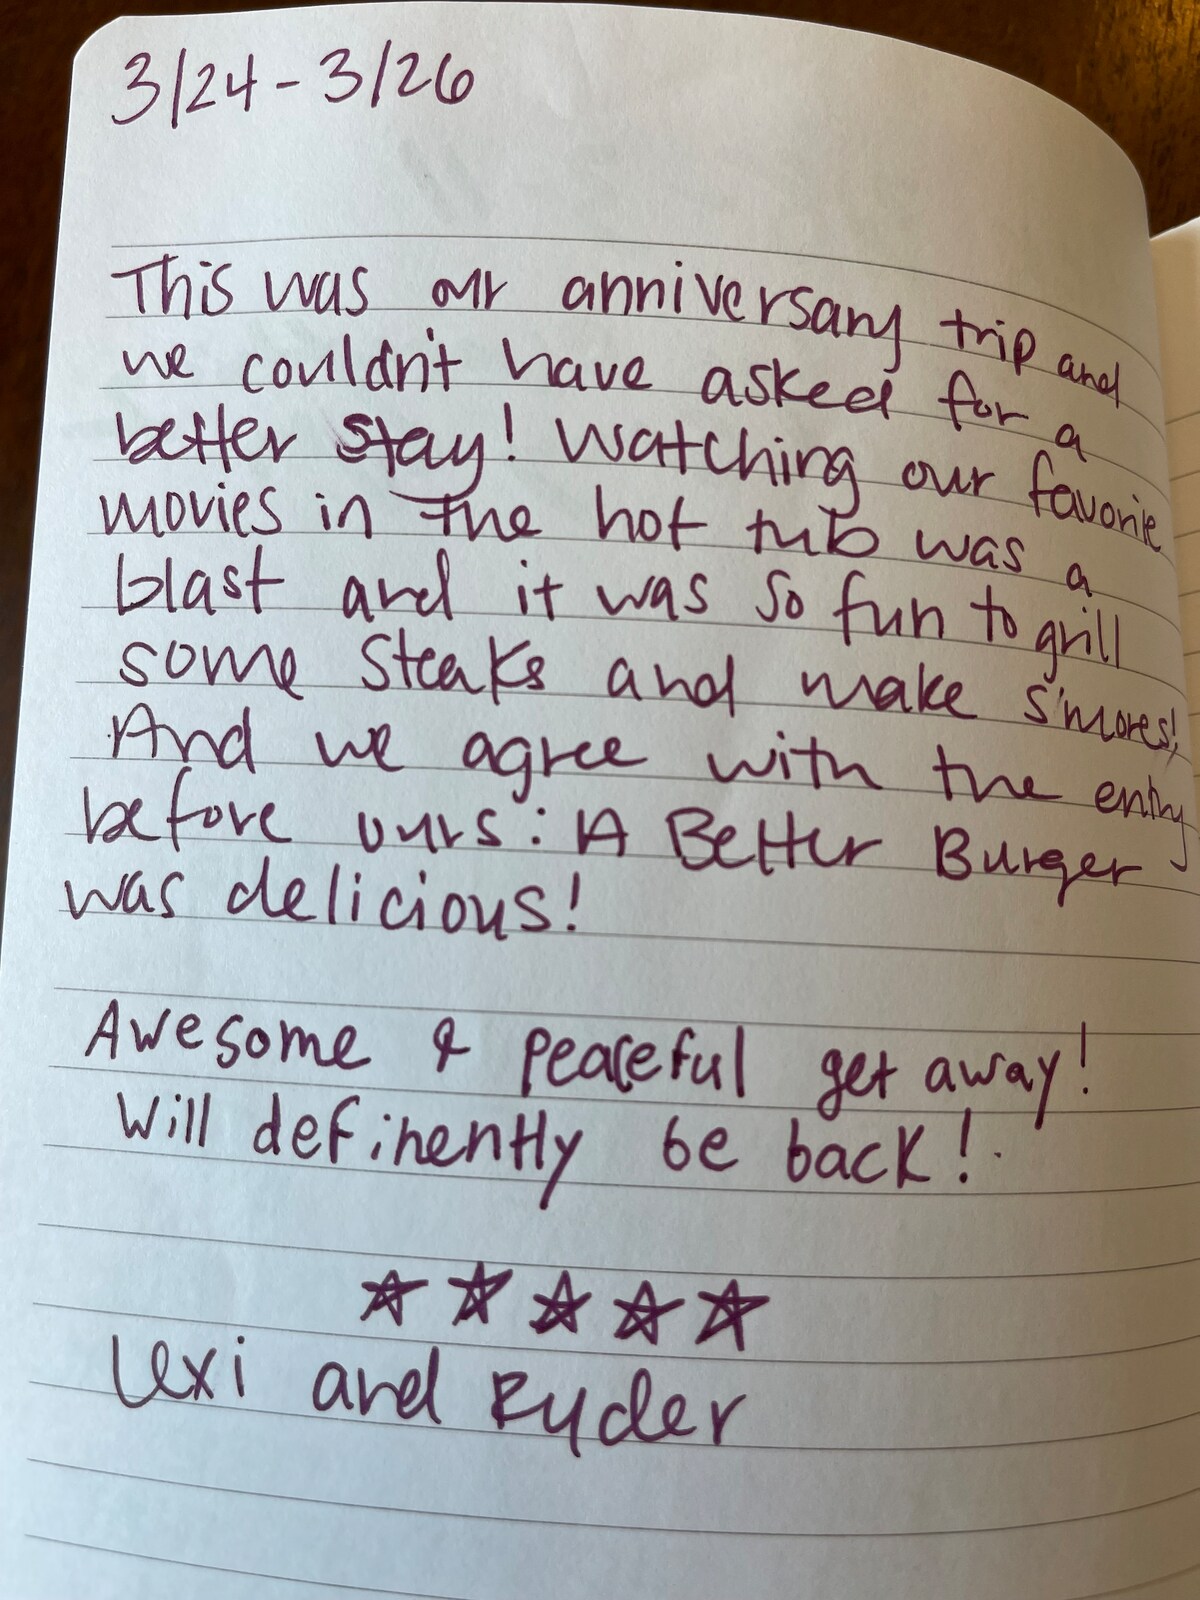 3/24 - 3/26
This was our anniversary trip and
we couldn't have asked for a
better stay! Watching our favorite
movies in the hot tub was a
blast and it was so fun to grill
some steaks and make s'mores!
And we agree with the entry
before ours: A Better Burger
was delicious!
Awesome & peaceful get away!
Will definently be back!
☆☆☆☆☆
Lexi and Ryder